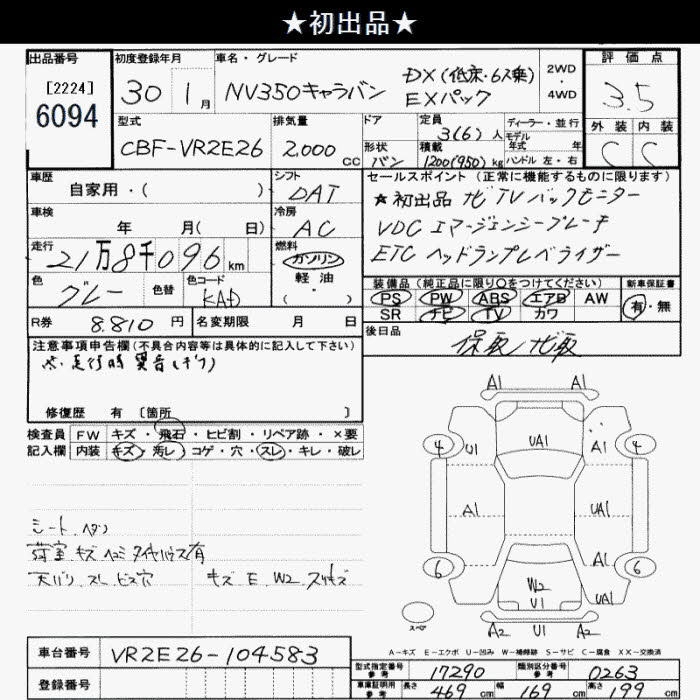 ★初出品★
出品番号
[2224]
6094
初度登録年月
30 1月
車名・グレード
NV350キャラバン
DX(低床・6人乗)
EXパック
2WD
4WD
評価点
3.5
外装 内装
C C
型式
CBF-VR2E26
排気量
2,000cc
ドア
形状
バン
定員
3(6)人
積載
1200(950)kg
ディーラー・並行
モデル
年式 年
ハンドル 左・右
車歴
自家用・( )
シフト
DAT
セールスポイント(正常に機能するものに限ります)
★初出品 ナビ TV バックモニター
VDC エマージェンシーブレーキ
ETC ヘッドランプレベライザー
車検
年 月( 日)
冷房
AC
走行
21万8千096km
燃料
ガソリン
軽油
( ・ )
色
グレー
色替
色コード
KAD
装備品(純正品に限り○をつけてください)
PS PW ABS エアB AW
SR ナビ TV カワ
新車保証書
有・無
R券
8.810円
名変期限 月 日
後日品
保取/ナビ取
注意事項申告欄(不具合内容等は具体的に記入して下さい)
走行時 異音
修復歴 有 〔箇所 〕
検査員
記入欄
FW キズ・飛石・ヒビ割・リペア跡・×要
内装 キズ・汚レ・コゲ・穴・スレ・キレ・破レ
シート ヘタリ
荷室 キズ ヘコミ タイヤハウス有
天バリ スレ ビス穴 キズ E W2 スリキズ
A1 A1
4 U1 UA1 A1 4
A1 UA1
A1
6 W2 6
U1 UA1
スペア A2 U1 A2
A-キズ E-エクボ U-凹み W-補修跡 S-サビ C-腐食 XX-交換済
車台番号
VR2E26-104583
登録番号
型式指定番号
参考
17290
類別区分番号
参考
0263
車庫証明用
参考
長さ 469cm 幅 169cm 高さ 199cm